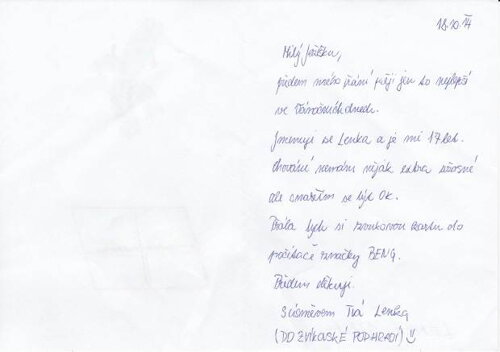 18.10.14
Milý Ježíšku,
předem mého přání přeji jen to nejlepší
ve Vánočních dnech.
Jmenuji se Lenka a je mi 17 let.
Chování nemám nijak extra úžasné
ale snažím se být OK.
Přála bych si zvukovou kartu do
počítače značky BENQ.
Předem děkuji.
S úsměvem Tvá Lenka
(DO ZVÍKOVSKÉ PODHRADÍ)